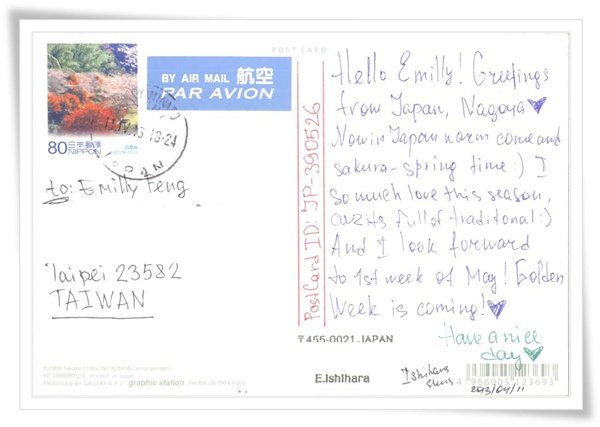 POST CARD
BY AIR MAIL 航空
PAR AVION
80 日本郵便
NIPPON
18-24
to: Emilly Feng
Taipei 23582
TAIWAN
PostCard ID: JP-390526
Hello Emilly! Greetings
from Japan, Nagoya
Now in Japan warm come and
sakura-spring time :) I
so much love this season,
cuz its full of traditional :)
And I look forward
to 1st week of May! Golden
Week is coming!
Have a nice
day
〒455-0021, JAPAN
E.Ishihara
Printed in Japan
PRODUCED BY GALLERY graphic station
4 966005 123693
2013/04/11